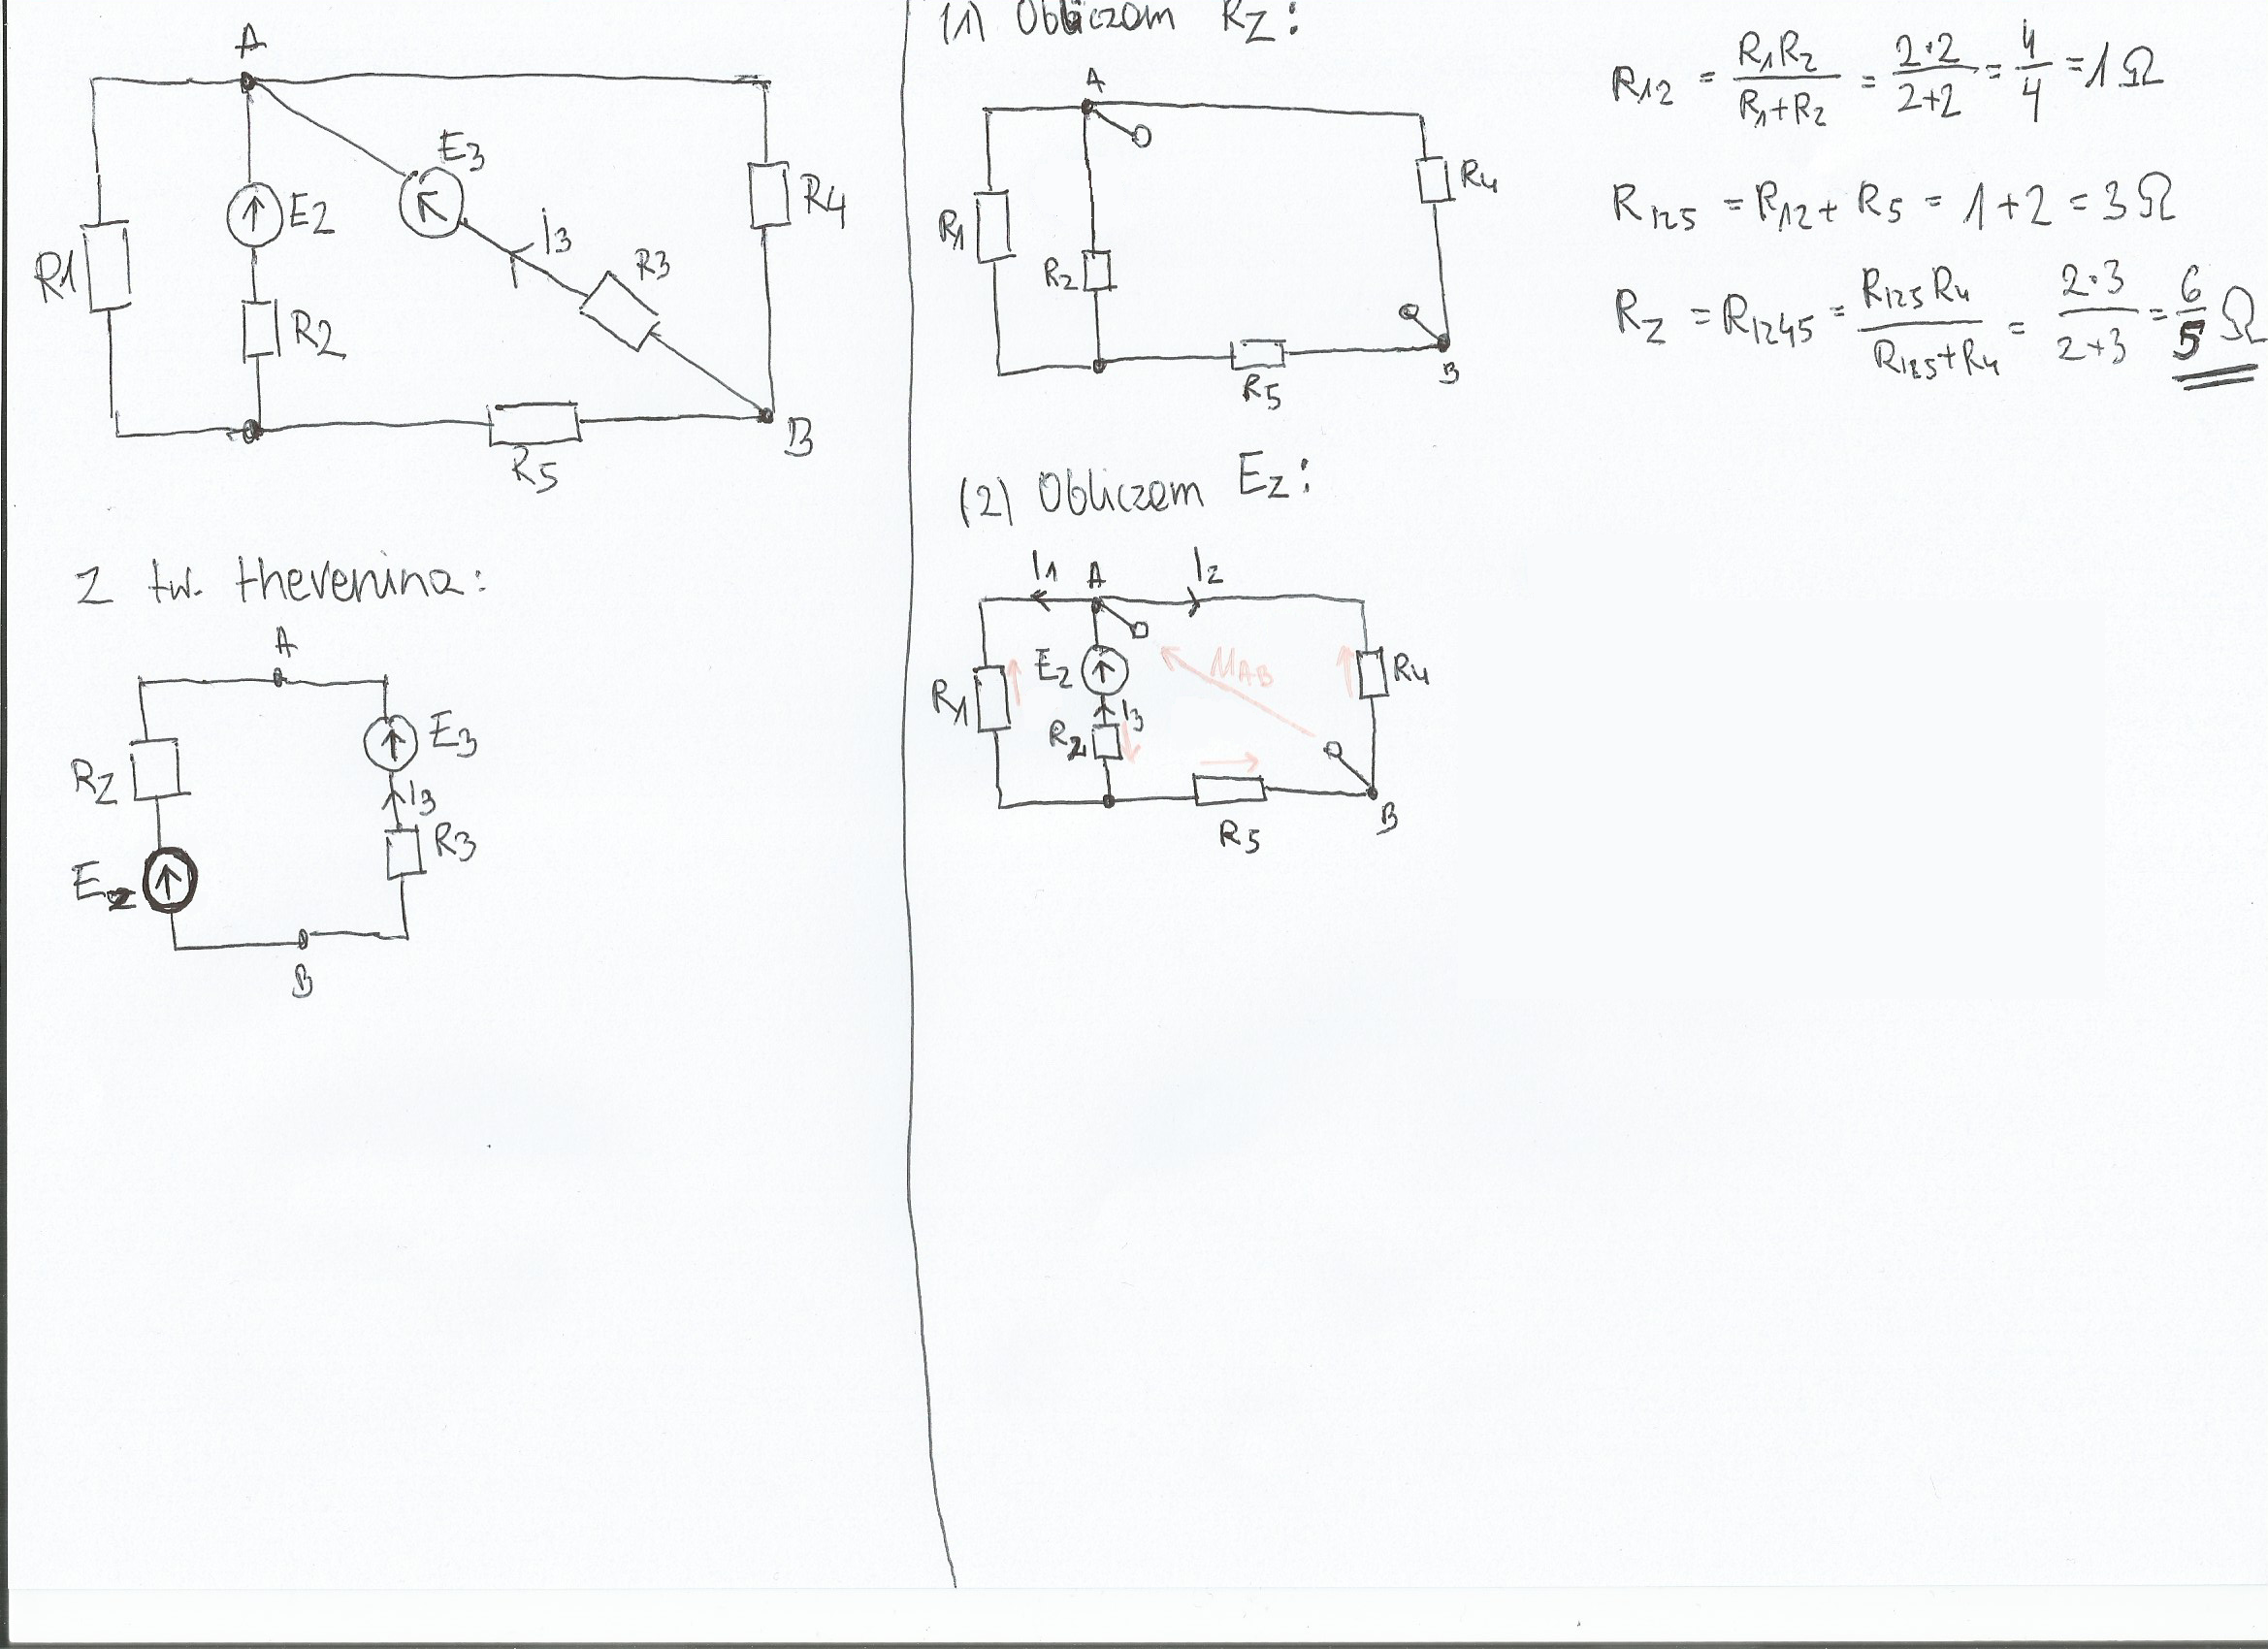 A
E3
E2
i3
R3
R4
R1
R2
R5
B
Z tw. thevenina:
A
E3
RZ
I3
R3
Ez
B
(1) Obliczam RZ:
A
R4
R1
R2
R5
B
R12 = R1R2 / R1+R2 = 2·2 / 2+2 = 4/4 = 1 Ω
R125 = R12 + R5 = 1+2 = 3 Ω
RZ = R1245 = R125 R4 / R125+R4 = 2·3 / 2+3 = 6/5 Ω
(2) Obliczam EZ:
I1 A I2
E2 UAB R4
R1
I3
R2
R5
B